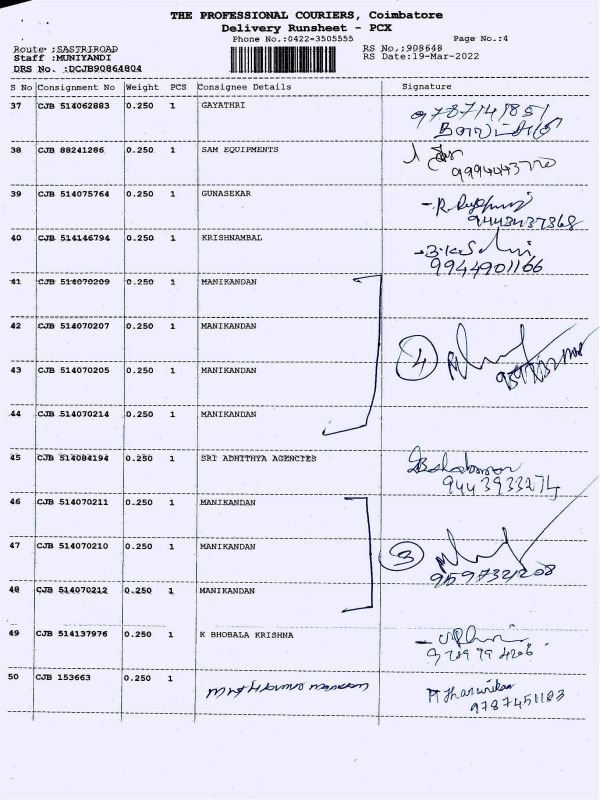 THE PROFESSIONAL COURIERS, Coimbatore
Delivery Runsheet - PCX
Phone No.:0422-3505555 Page No.:4
Route :SASTRIROAD RS No.:908648
Staff :MUNIYANDI RS Date:19-Mar-2022
DRS No. :DCJB90864804
S No Consignment No Weight PCS Consignee Details Signature
37 CJB 514062883 0.250 1 GAYATHRI 9787141851
38 CJB 88241286 0.250 1 SAM EQUIPMENTS
39 CJB 514075764 0.250 1 GUNASEKAR 9443437368
40 CJB 514146794 0.250 1 KRISHNAMBAL 9944901166
41 CJB 514070209 0.250 1 MANIKANDAN
42 CJB 514070207 0.250 1 MANIKANDAN
43 CJB 514070205 0.250 1 MANIKANDAN 4
44 CJB 514070214 0.250 1 MANIKANDAN
45 CJB 514084194 0.250 1 SRI ADHITHYA AGENCIES 9443933274
46 CJB 514070211 0.250 1 MANIKANDAN
47 CJB 514070210 0.250 1 MANIKANDAN 3
9597321208
48 CJB 514070212 0.250 1 MANIKANDAN
49 CJB 514137976 0.250 1 K BHOBALA KRISHNA
50 CJB 153663 0.250 1 9787451183